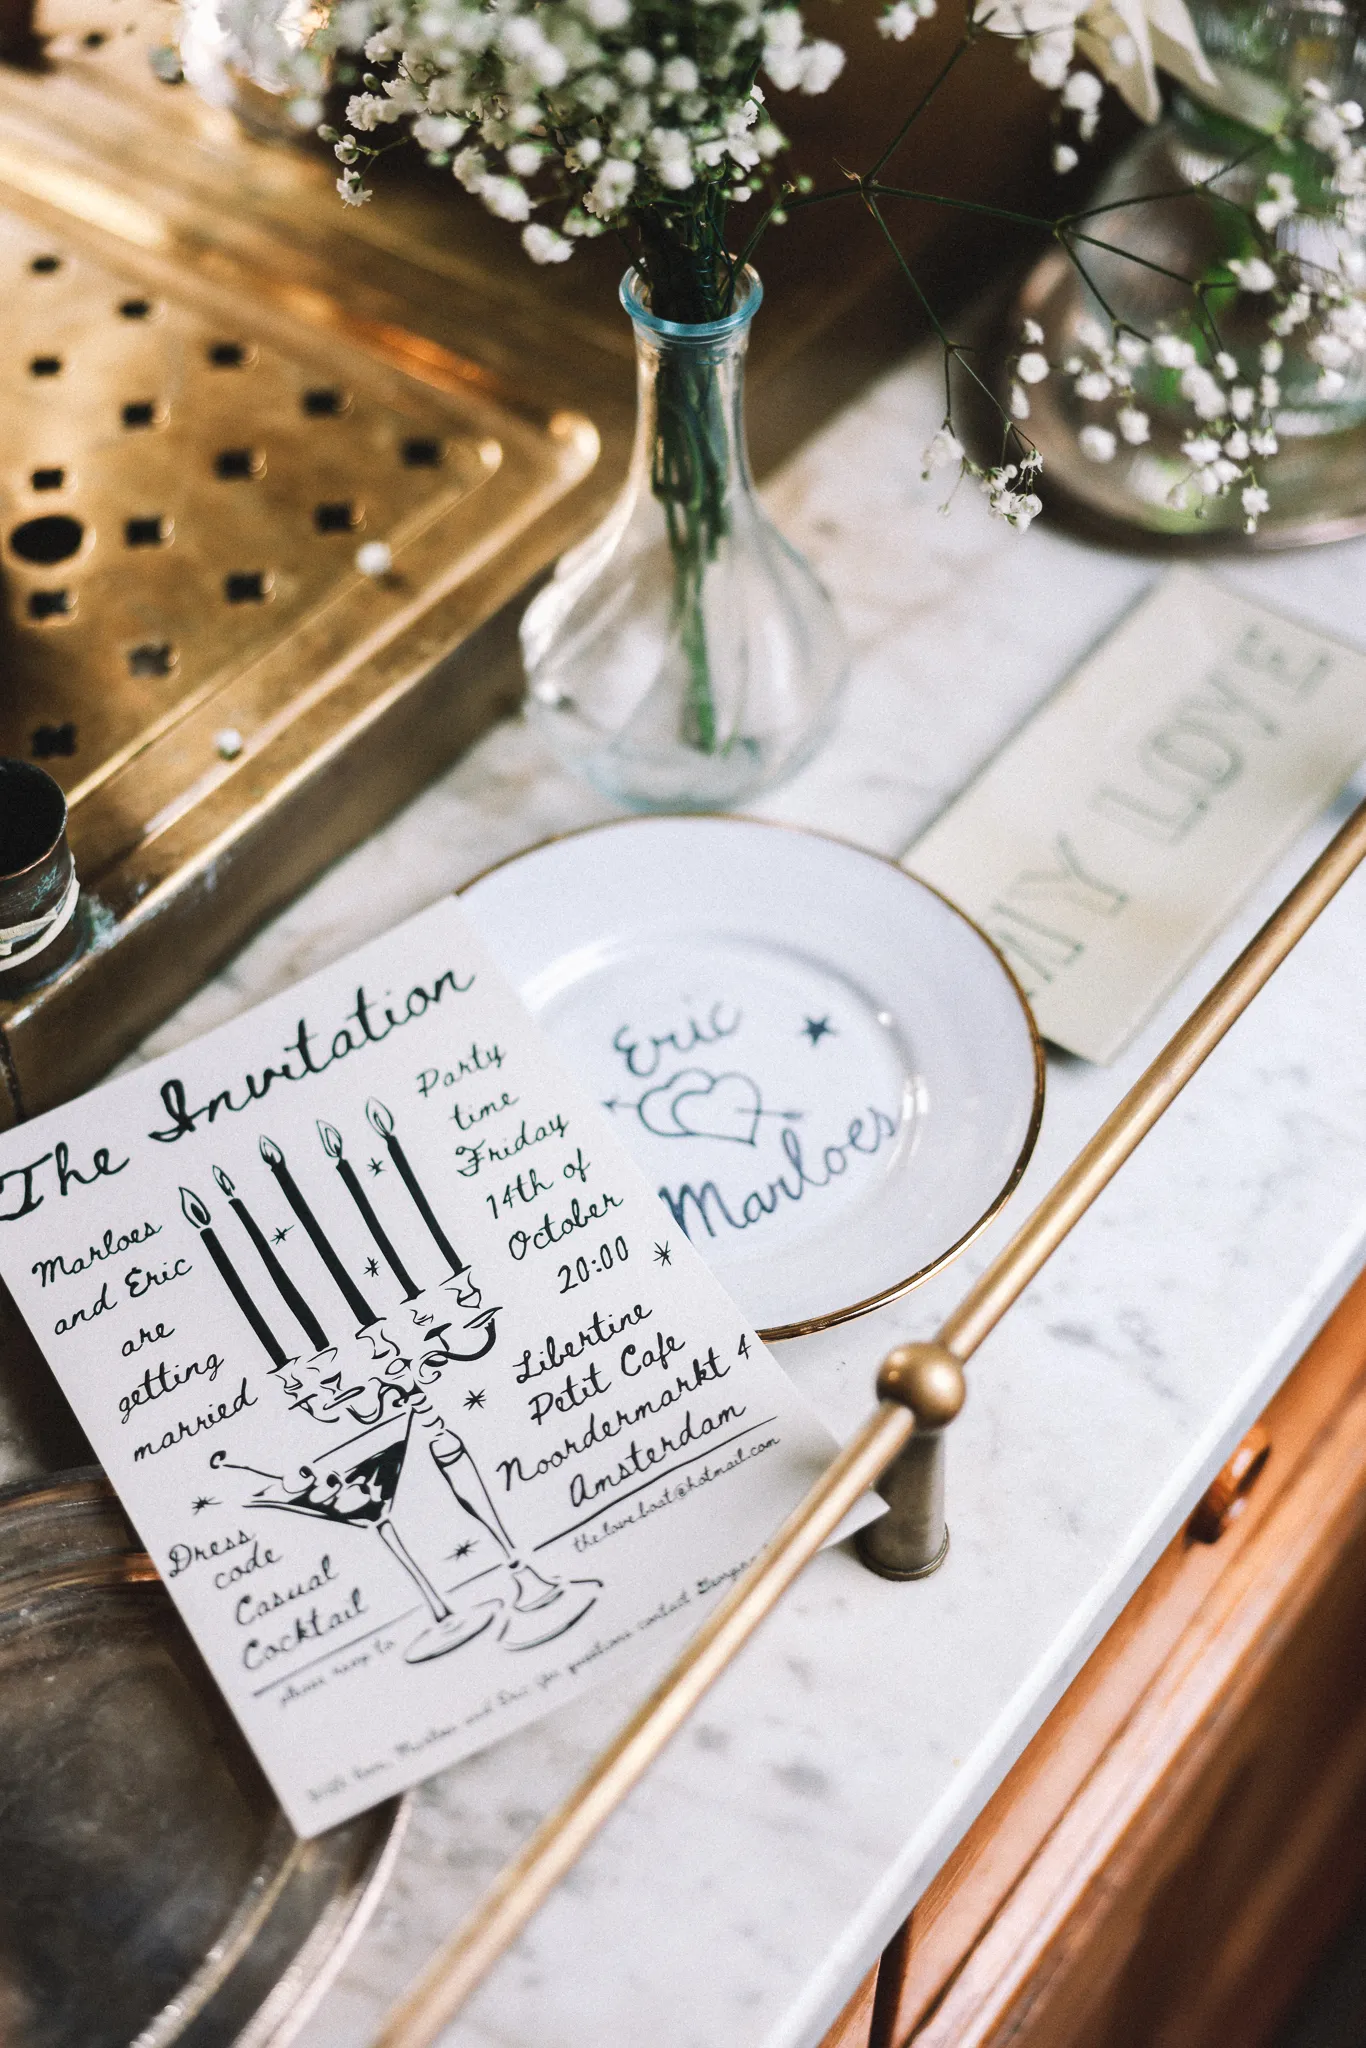 The Invitation
Marloes
and Eric
are
getting
married
Party
time
Friday
14th of
October
20:00
Libertine
Petit Cafe
Noordermarkt 4
Amsterdam
Dress
code
Casual
Cocktail
please rsvp to
the.love.boat@hotmail.com
Marloes and Eric for questions contact
Eric
Marloes
MY LOVE